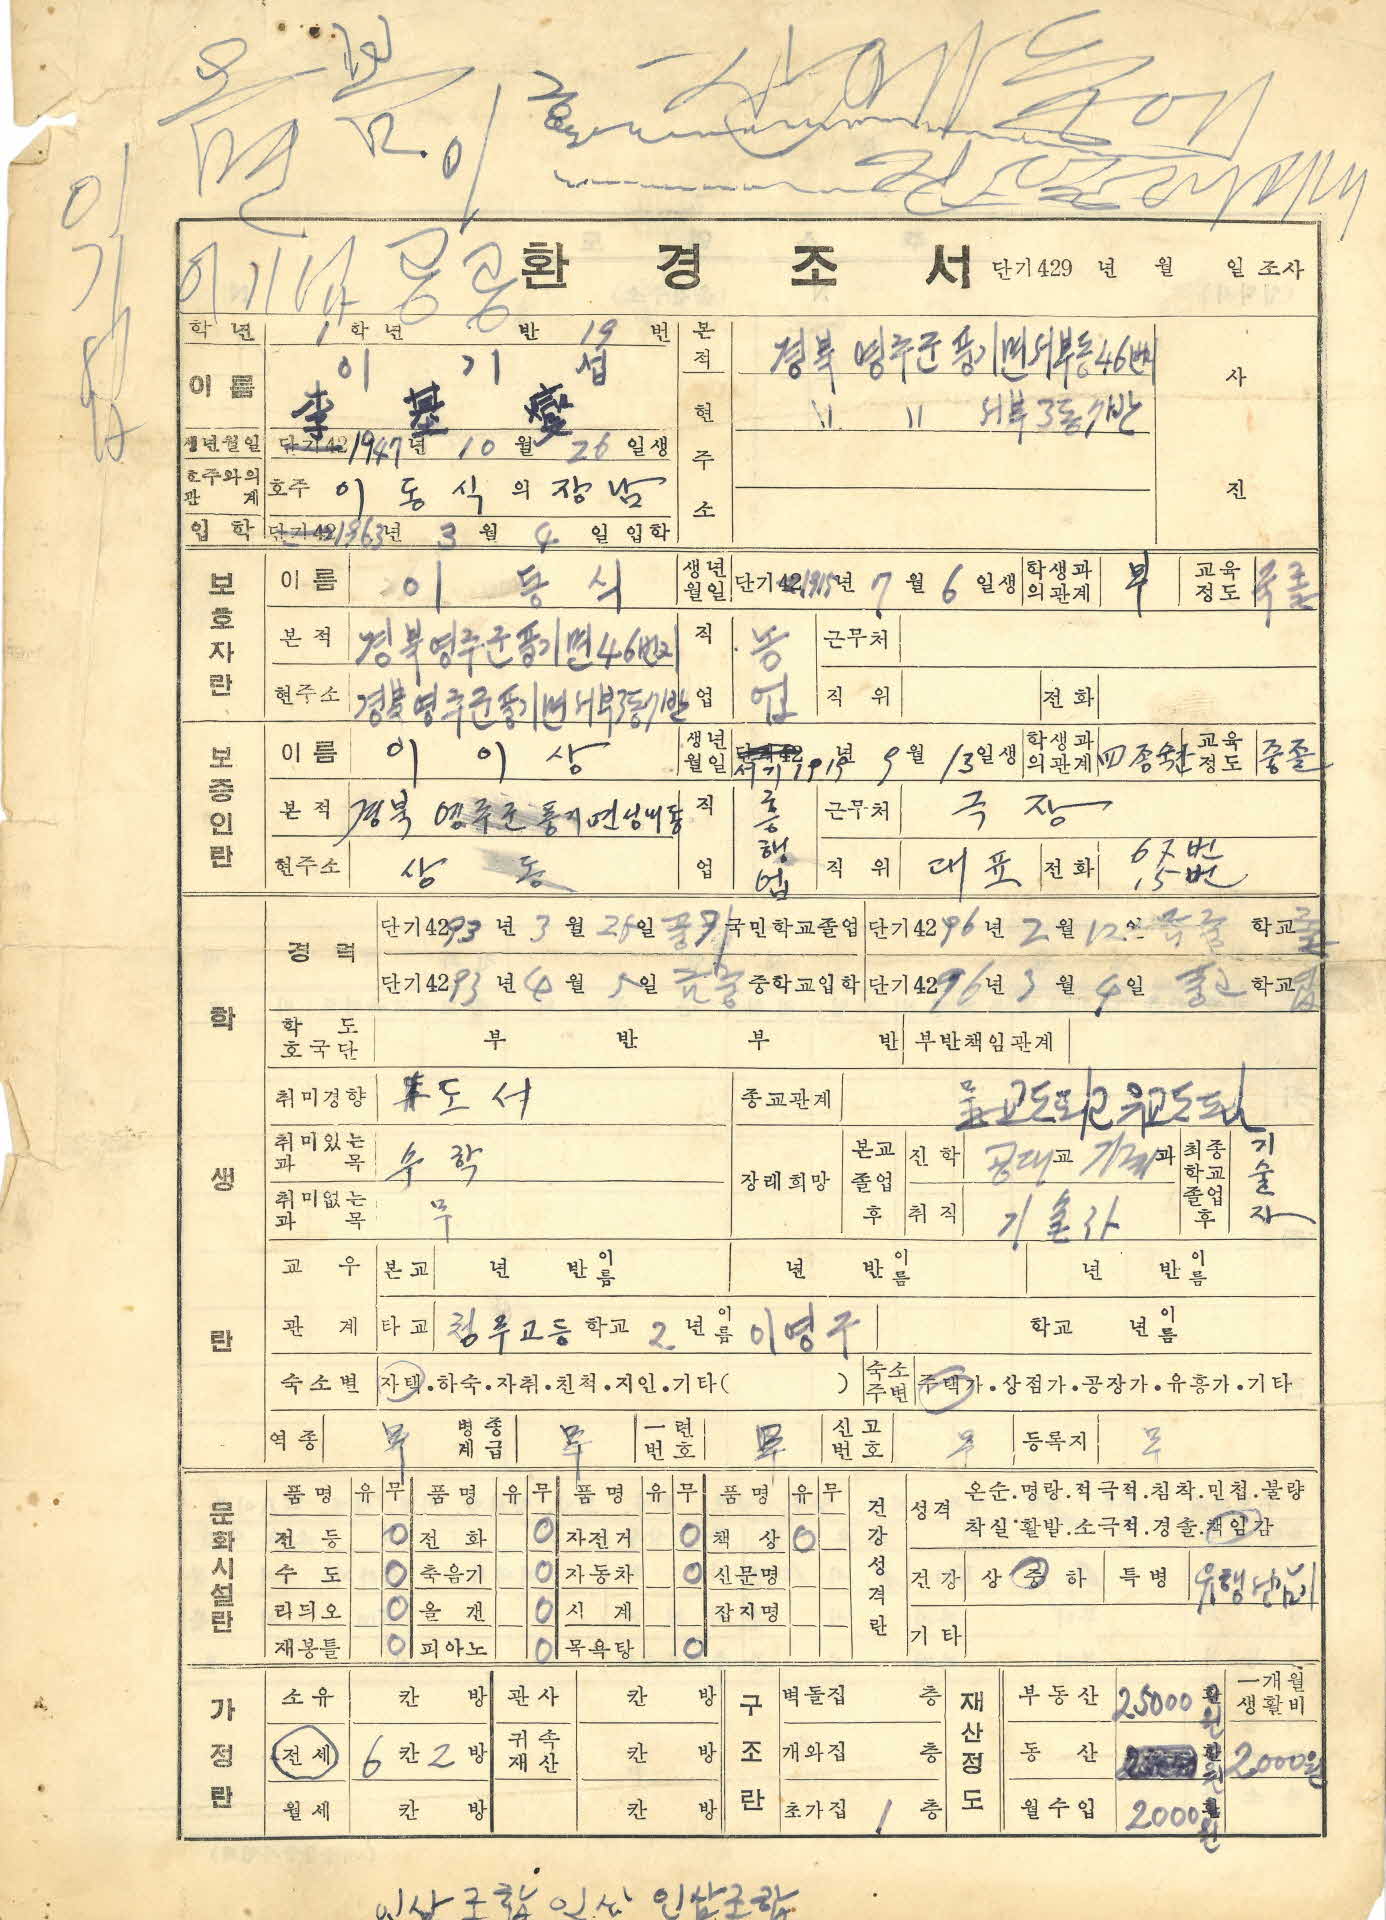 옴 봄
면 봄이
산에 들에
진달래 피네
이기섭
이기섭 공공
환경조서 단기429 년 월 일 조사
학년 1 학년 반 19 번
이름 이기섭
李基燮
생년월일 단기42 1947년 10월 26일생
호주와의 관계 호주 이동식의 장남
입학 단기42 1963년 3월 4일 입학
본적 경북 영주군 풍기면 서부동 46번지
현주소 〃 〃 서부3동 7반
사진
보호자란
이름 이동식 생년월일 단기42 1915년 7월 6일생 학생과의관계 부 교육정도 국졸
본적 경북 영주군 풍기면 46번지 직업 농업 근무처
현주소 경북 영주군 풍기면 서부3동 7반 직위 전화
보증인란
이름 이이상 생년월일 단기42 서기 1919년 9월 13일생 학생과의관계 四종숙 교육정도 중졸
본적 경북 영주군 풍기면 성내동 직업 흥행업 근무처 극장
현주소 상동 직위 대표 전화 67번 15번
학생란
경력 단기4293년 3월 28일 풍기국민학교졸업 단기4296년 2월 12일 학교졸
단기4293년 4월 5일 중학교입학 단기4296년 3월 4일 풍고 학교입
학도호국단 부 반 부 반 부반책임관계
취미경향 도서 종교관계
취미있는과목 수학
취미없는과목 무
장래희망 본교졸업후 진학 공대교 기계과 최종학교졸업후 기술자
취직 기술자
교우관계 본교 년 반 이름 년 반 이름 년 반 이름
타교 고등학교 2년 이름 이영구 학교 년 이름
숙소별 자택.하숙.자취.친척.지인.기타( ) 숙소주변 주택가.상점가.공장가.유흥가.기타
역종 무 병종계급 무 一련번호 무 신고번호 무 등록지 무
문화시설란
품명 유 무 품명 유 무 품명 유 무 품명 유 무
전등 0 전화 0 자전거 0 책상 0
수도 0 축음기 0 자동차 0 신문명
라듸오 0 올갠 0 시계 잡지명
재봉틀 0 피아노 0 목욕탕 0
건강성격란
성격 온순.명랑.적극적.침착.민첩.불량
착실.활발.소극적.경솔.책임감
건강 상 중 하 특병
기타
가정란
소유 칸 방 관사 칸 방
전세 6칸 2방 귀속재산 칸 방
월세 칸 방 칸 방
구조란
벽돌집 층
개와집 층
초가집 1층
재산정도
부동산 25000 환 원 一개월생활비
동산 환 원 2000원
월수입 2000 환 원
인삼조합 인삼 인삼조합